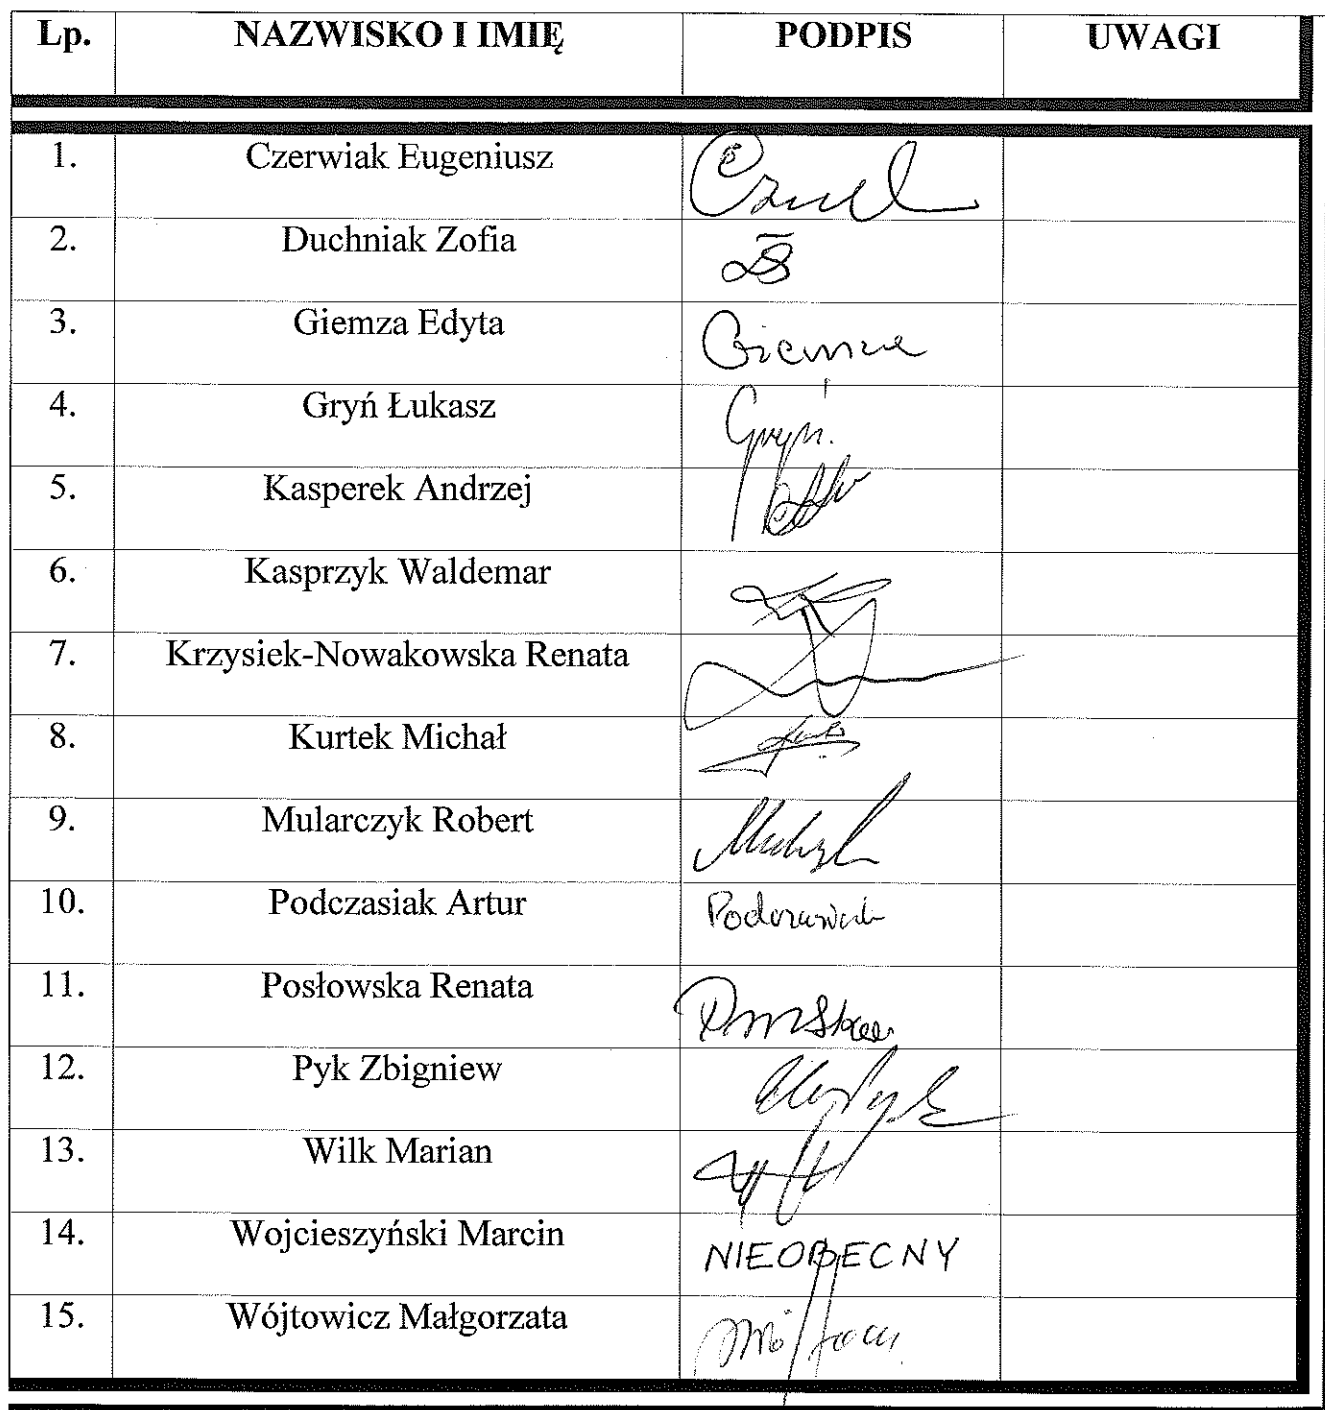 Lp. NAZWISKO I IMIĘ PODPIS UWAGI
1. Czerwiak Eugeniusz
2. Duchniak Zofia
3. Giemza Edyta Giemza
4. Gryń Łukasz Gryń.
5. Kasperek Andrzej
6. Kasprzyk Waldemar
7. Krzysiek-Nowakowska Renata
8. Kurtek Michał
9. Mularczyk Robert
10. Podczasiak Artur Podczasiak
11. Posłowska Renata
12. Pyk Zbigniew
13. Wilk Marian
14. Wojcieszyński Marcin NIEOBECNY
15. Wójtowicz Małgorzata